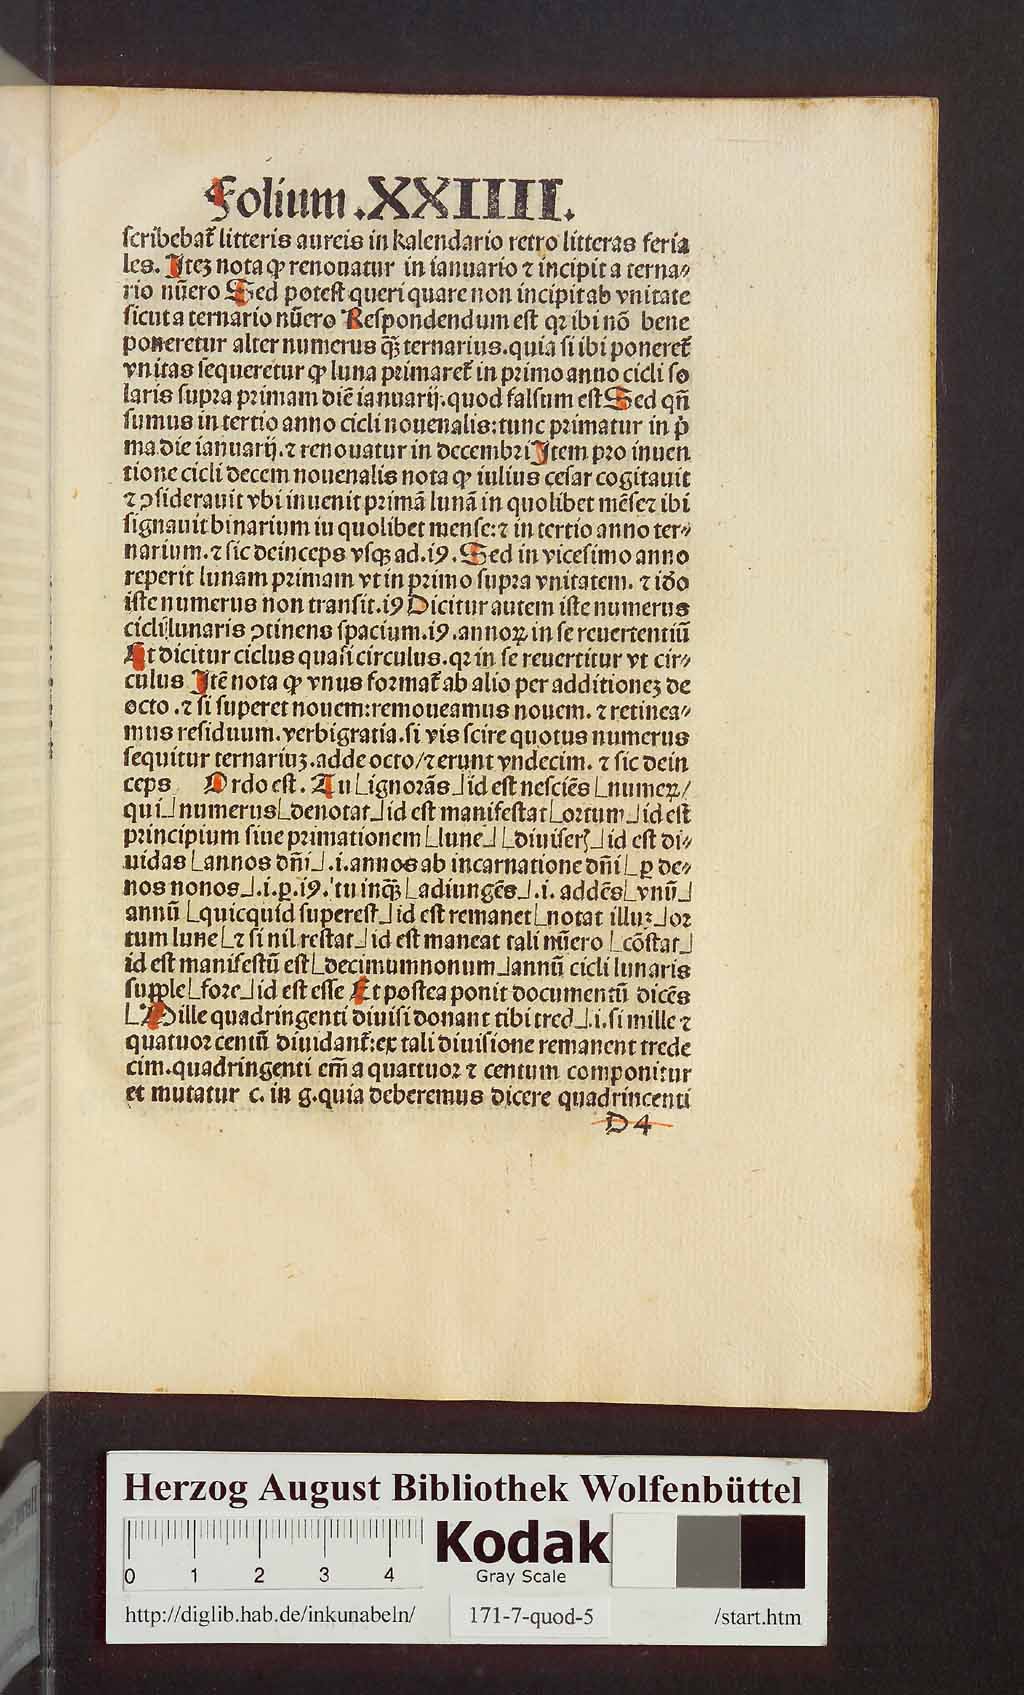 Folium .XXIIII.
ſcribebat᷑ litteris aureis in kalendario retro litteras feria
les. Iteꝫ nota ꝙ renouatur in ianuario ⁊ incipit a terna⸗
rio nūero Sed poteſt queri quare non incipit ab vnitate
ſicut a ternario nūero Reſpondendum eſt qꝛ ibi nō bene
poneretur alter numerus qꝫ̄ ternarius.quia ſi ibi poneret᷑
vnitas ſequeretur ꝙ luna primaret᷑ in primo anno cicli ſo
laris ſupra primam diē ianuarij.quod falſum eſt Sed qn̄
ſumus in tertio anno cicli nouenalis:tunc primatur in p̄
ma die ianuarij.⁊ renouatur in decembri Item pro inuen
tione cicli decem nouenalis nota ꝙ iulius ceſar cogitauit
⁊ ꝯſiderauit vbi inuenit primā lunā in quolibet mēſe⁊ ibi
ſignauit binarium iu quolibet menſe:⁊ in tertio anno ter⸗
narium.⁊ ſic deinceps vſqꝫ ad.i9.Sed in viceſimo anno
reperit lunam primam vt in primo ſupra vnitatem. ⁊ iδo
iſte numerus non tranſit.i9 Dicitur autem iſte numerus
cicli lunaris ꝯtinens ſpacium.i9.annoꝝ in ſe reuertentiū
Et dicitur ciclus quaſi circulus.qꝛ in ſe reuertitur vt cir⸗
culus Itē nota ꝙ vnus format᷑ ab alio per additioneꝫ de
octo .⁊ ſi ſuperet nouem:remoueamus nouem. ⁊ retinea⸗
mus reſiduum.verbigratia.ſi vis ſcire quotus numerus
ſequitur ternariuꝫ.adde octo/⁊ erunt vndecim. ⁊ ſic dein
ceps Ordo eſt. Tu ⌊ignorās⌋ id eſt neſciēs ⌊numeꝝ/
qui⌋ numerus⌊denotat⌋ id eſt manifeſtat⌊ortum⌋ id eſt
principium ſiue primationem ⌊lune⌋ ⌊diuiſerſ⌋ id eſt di⸗
uidas ⌊annos dn̄i⌋ .i.annos ab incarnatione dn̄i ⌊ꝑ de⸗
nos nonos⌋.i.ꝑ.i9.tu inqꝫ̄ ⌊adiungēs⌋.i. addēs⌊vnū⌋
annū ⌊quicquid ſupereſt⌋ id eſt remanet⌊notat illuꝛ⌋or
tum lune⌊⁊ ſi nil reſtat⌋ id eſt maneat tali nūero ⌊cōſtat⌋
id eſt manifeſtū eſt⌊decimumnonum⌋annū cicli lunaris
ſupple⌊fore⌋id eſt eſſe Et poſtea ponit documentū dicēs
⌊Mille quadringenti diuiſi donant tibi tred⌋.i.ſi mille ⁊
quatuor centū diuidant᷑:ex tali diuiſione remanent trede
cim.quadringenti em̄ a quattuor ⁊ centum componitur
et mutatur c. in g.quia deberemus dicere quadrincenti
D 4
Herzog August Bibliothek Wolfenbüttel
Kodak
Gray Scale
0 1 2 3 4
http://diglib.hab.de/inkunabeln/ 171-7-quod-5 /start.htm